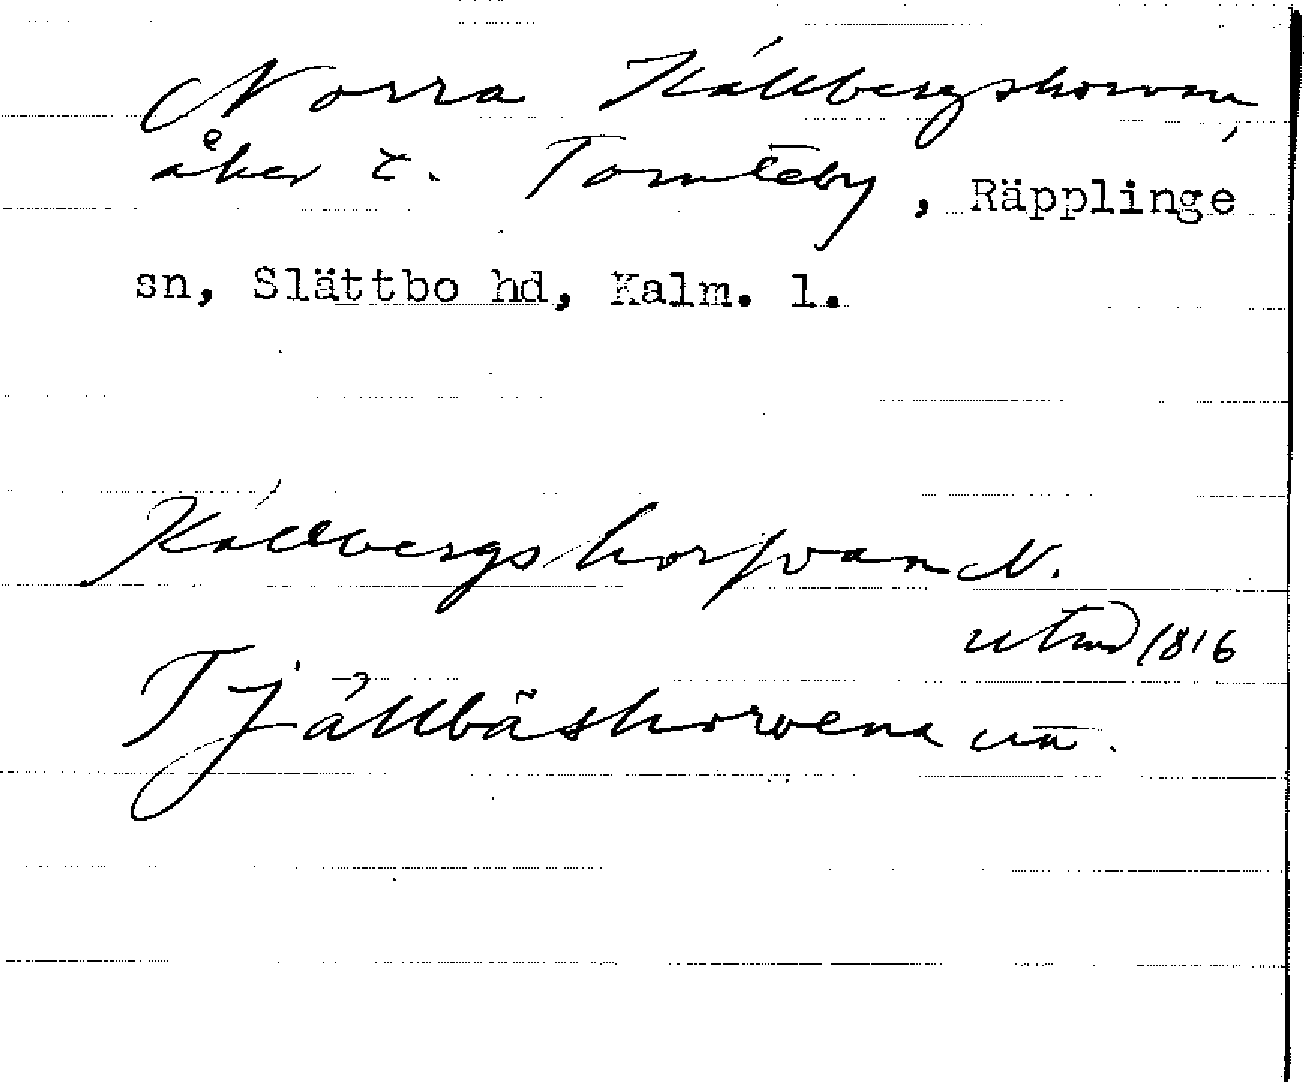 Norra Källbergshorvan,
åker t. Tomteby, Räpplinge
sn, Slättbo hd, Kalm. l.
Källbergshorfvan N.
utmd 1816
Tjällbäshorvena un.